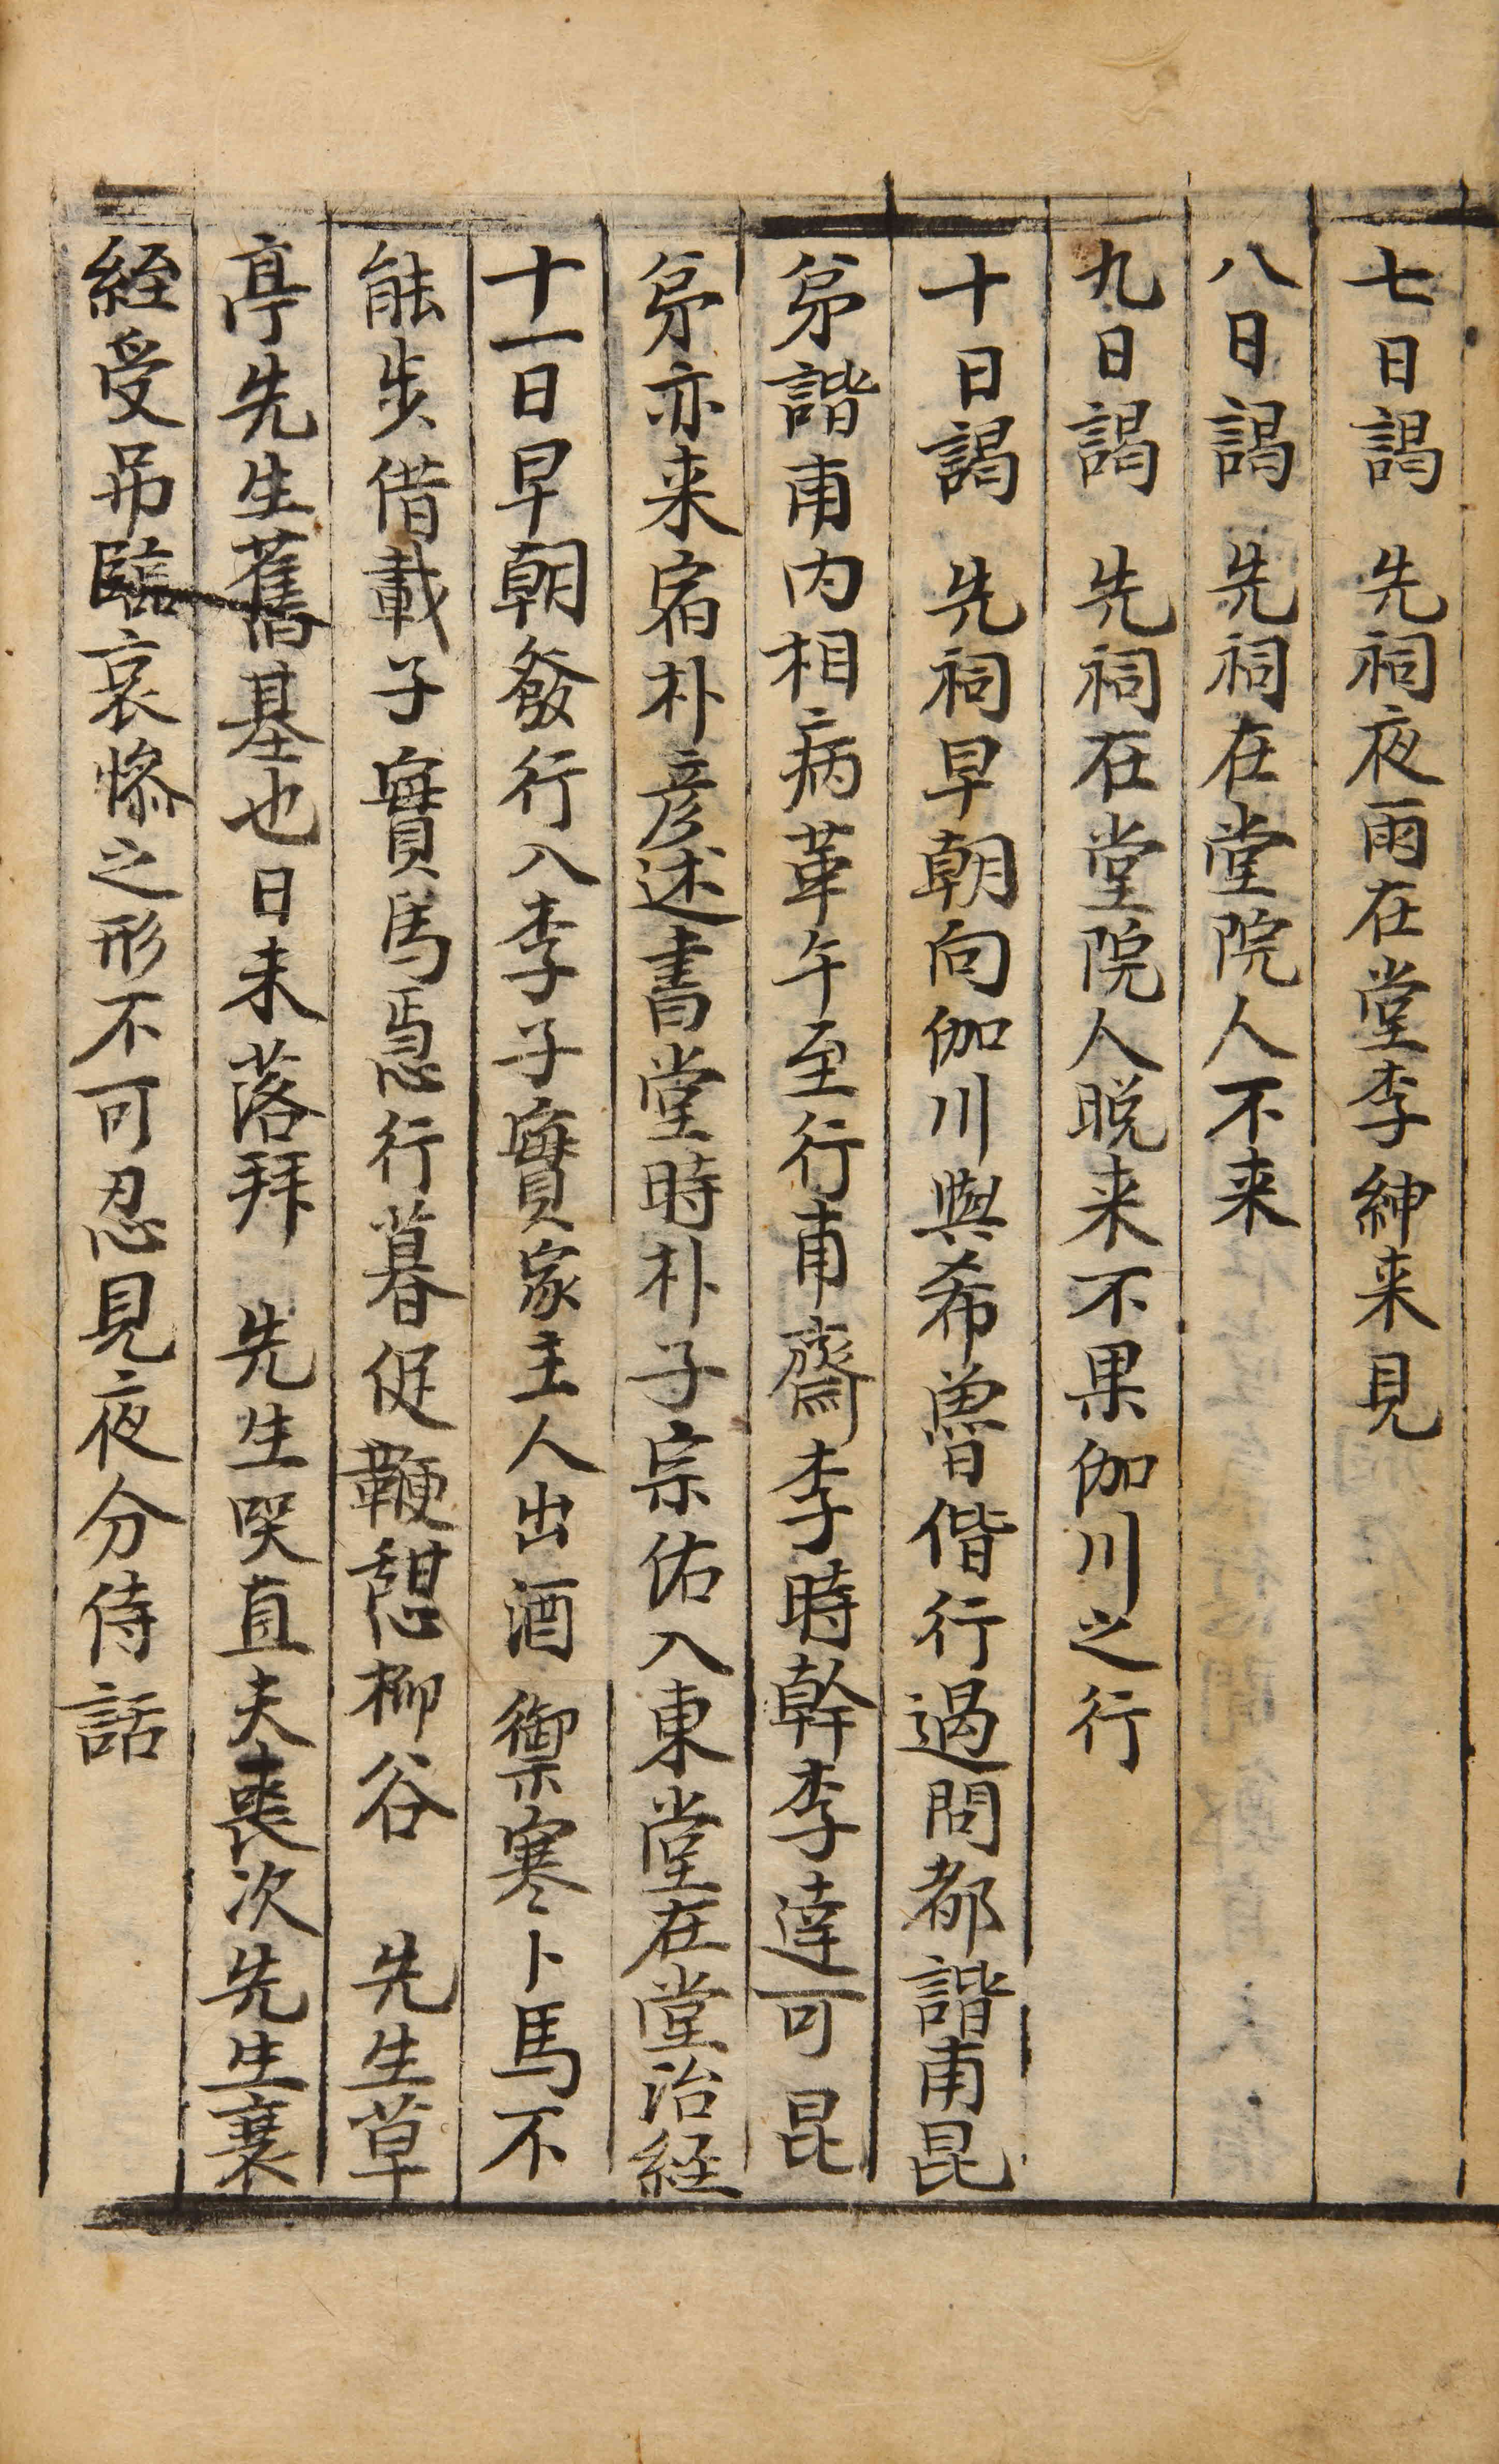 七日謁　先祠夜雨在堂李紳来見
八日謁　先祠在堂院人不来
九日謁　先祠在堂院人晩来不果伽川之行
十日謁　先祠早朝向伽川與希魯偕行過問都諧甫昆
弟諧甫内相病革午至行甫齋李時幹李達可昆
弟亦来宿朴彦述書堂時朴子宗佑入東堂在堂治経
十一日早朝發行入李子實家主人出酒禦寒卜馬不
能步借載子實馬焉行暮促鞭憩柳谷　先生草
亭先生舊基也日未落拜　先生哭直夫喪次先生衰
絰受吊臨哀慘之形不可忍見夜分侍話